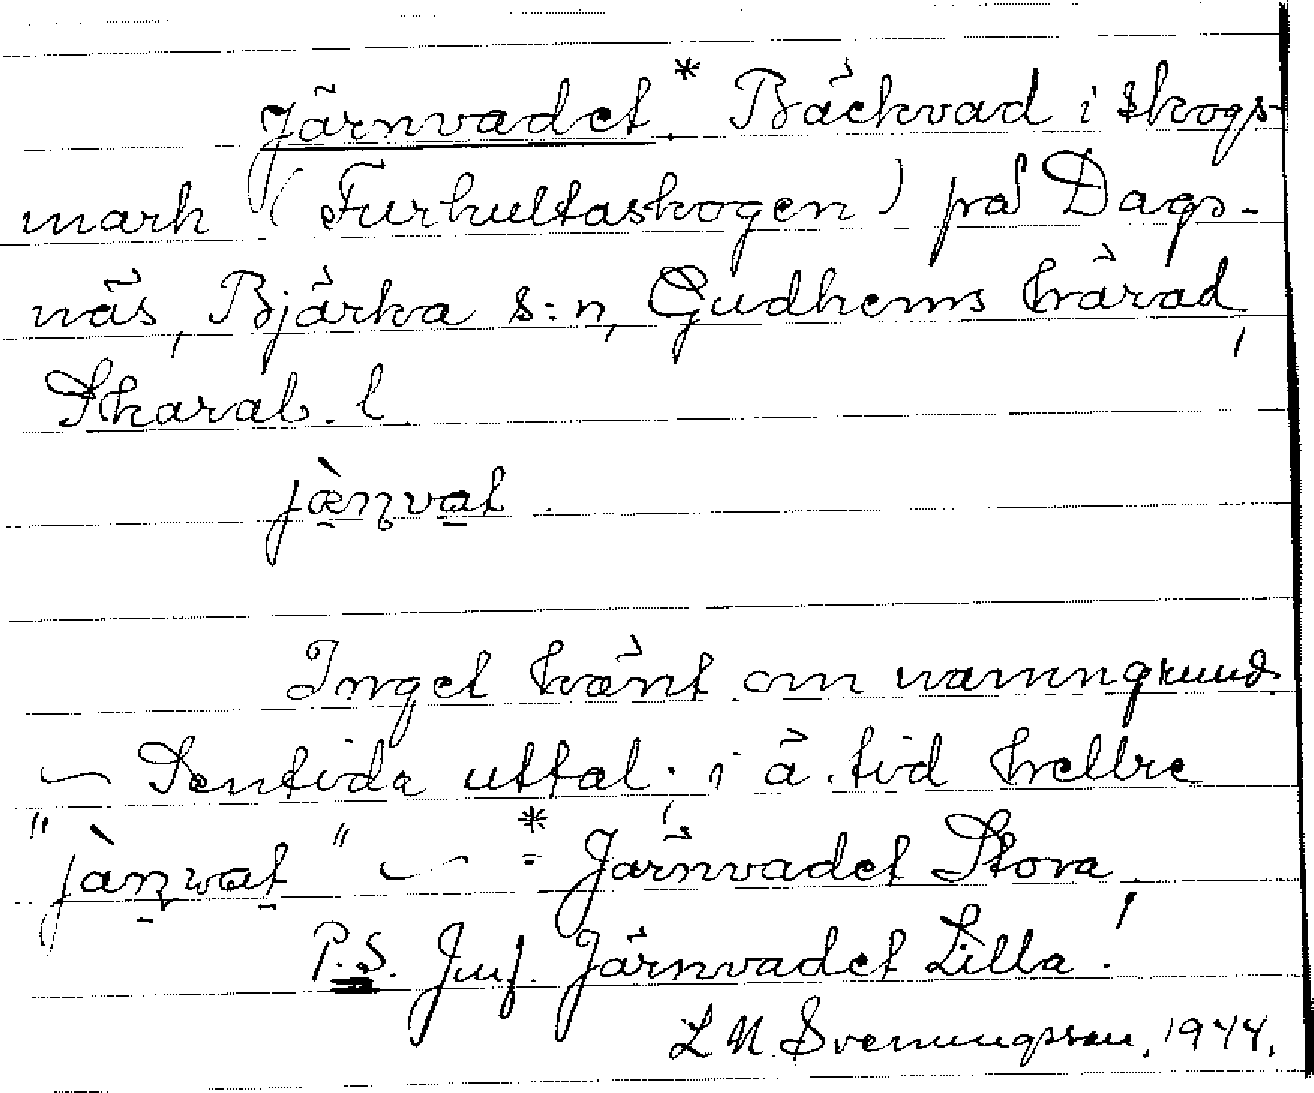 Järnvadet.* Bäckvad i skogs-
mark (Furhultaskogen) på Dags-
näs, Bjärka s:n, Gudhems härad,
Skarab. l.
jæ̀ṇvat.
Inget känt om namngrund.
— Sentida uttal. i ä. tid hellre
"jàṇvat" — * = Järnvadet Stora,
P.S. Jmf. Järnvadet Lilla!
L M. Svenungsson. 1944.